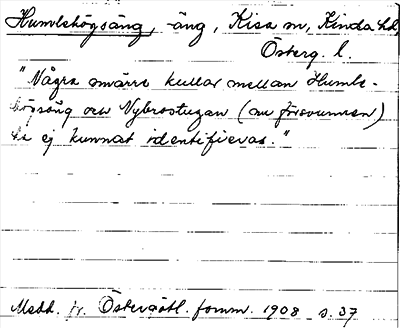 Humlehögsäng, äng, Kisa sn, Kinda hd,
Österg. l.
"Några smärre kullar mellan Humle-
högsäng och Nybrostugan (nu försvunnen)
ha ej kunnat identifieras."
Medd. fr. Östergötl. fornm. 1908 s. 37